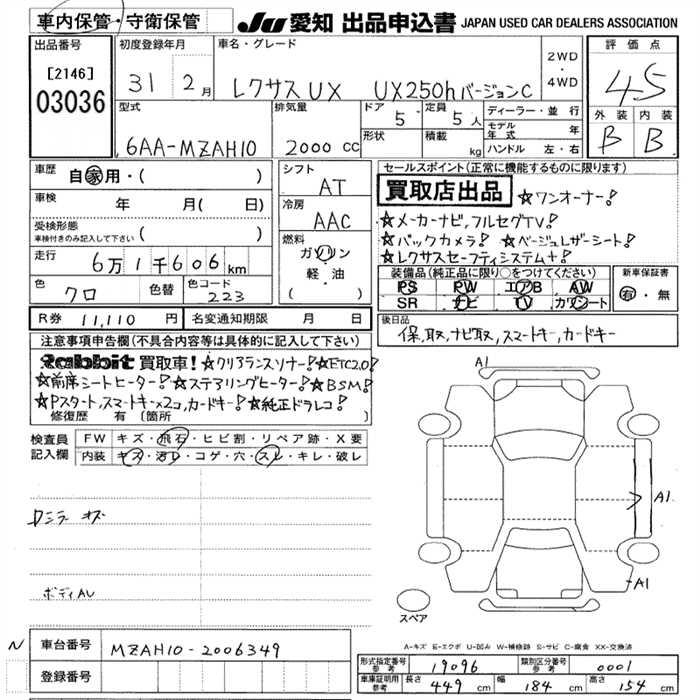 車内保管・守衛保管
JU 愛知 出品申込書 JAPAN USED CAR DEALERS ASSOCIATION
出品番号
[2146]
03036
初度登録年月
31 2月
車名・グレード
レクサスUX UX250hバージョンC
2WD
・
4WD
評価点
4.5
外装 内装
B B
型式
6AA-MZAH10
排気量
2000 cc
ドア 5
定員 5人
形状
積載 kg
ディーラー・並行
モデル年式 年
ハンドル 左・右
車歴 自家用・( )
車検 年 月( 日)
受検形態
車検付きのみ記入して下さい ( )
走行 6万1千606km
色 クロ 色替 色コード 223
シフト
AT
冷房
AAC
燃料
ガソリン
軽・油
( )
セールスポイント(正常に機能するものに限ります)
買取店出品 ☆ワンオーナー!
☆メーカーナビ,フルセグTV!
☆バックカメラ! ☆ベージュレザーシート!
☆レクサスセーフティシステム+!
装備品(純正品に限り○をつけてください)
PS PW エアB AW
SR ナビ TV カワシート
新車保証書
有・無
R券 11,110 円 名変通知期限 月 日
後日品
保,取,ナビ取,スマートキー,カードキー
注意事項申告欄(不具合内容等は具体的に記入して下さい)
Rabbit 買取車! ☆クリアランスソナー! ☆ETC2.0!
☆前席シートヒーター! ☆ステアリングヒーター! ☆BSM!
☆Pスタート,スマートキー×2コ,カードキー! ☆純正ドラレコ!
修復歴 有 〔箇所
検査員記入欄
FW キズ・飛石・ヒビ割・リペア跡・X要
内装 キズ・汚レ・コゲ・穴・スレ・キレ・破レ
ボディAU
A1
A1
A1
スペア
A-キズ E-エクボ U-凹み W-補修跡 S-サビ C-腐食 XX-交換済
N 車台番号 MZAH10-2006349
登録番号
形式指定番号 参考 19096 類別区分番号 参考 0001
車庫証明用 参考 長さ 449 cm 幅 184 cm 高さ 154 cm